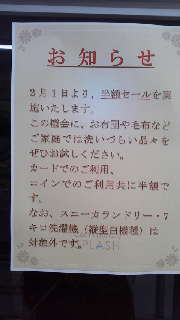 お知らせ
2月1日より、半額セールを実
施いたします。
この機会に、お布団や毛布など
ご家庭では洗いづらい品々を
ぜひお試しください。
カードでのご利用、
コインでのご利用共に半額で
す。
なお、スニーカランドリー・7
キロ洗濯機（縦型白機種）は
対象外です。
SPLASH